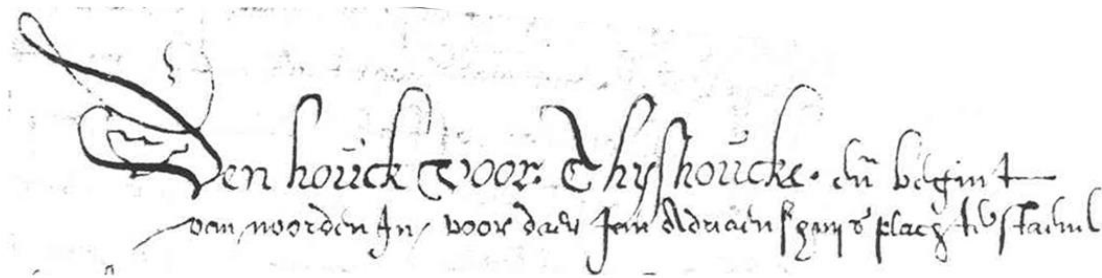 Den houck voor Thyshoucke. en̄ begint
van noorden In voor daer Jan Adriaensz huys plach te staene